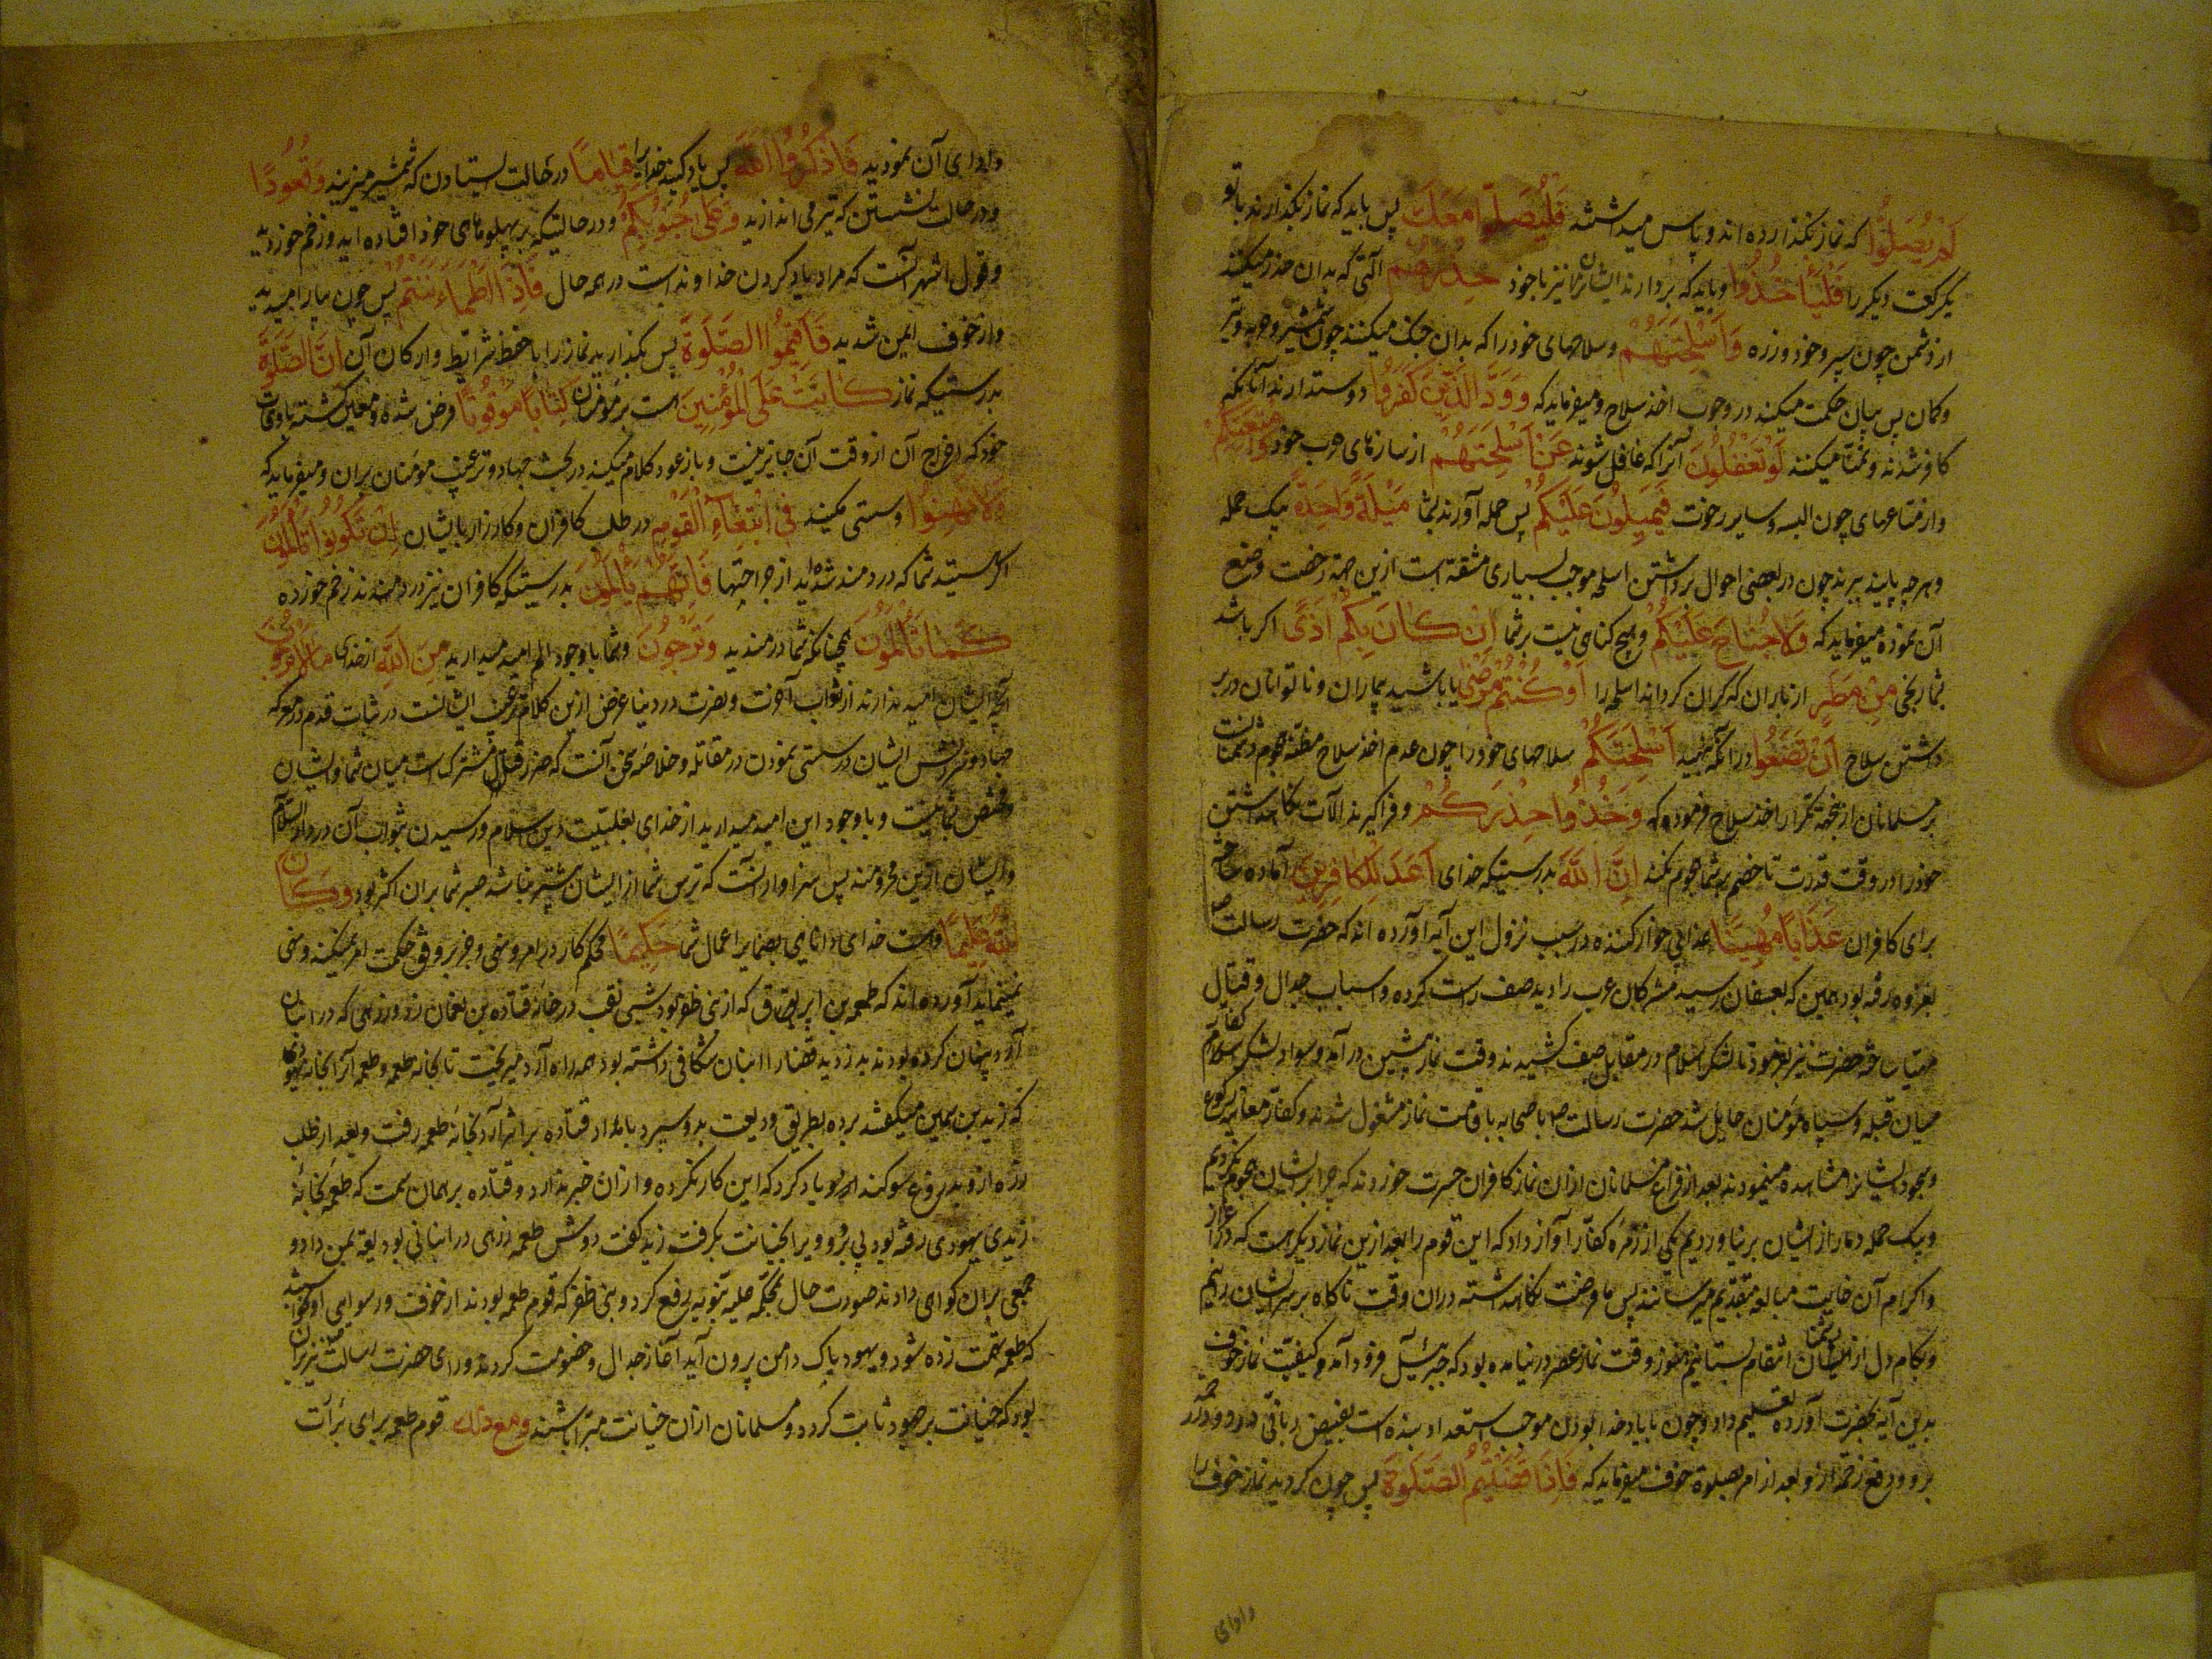 لَمْ يُصَلُّوا که نماز نگذارده اند و پاس میداشتند فَلْيُصَلُّوا مَعَكَ پس باید که نماز بگذارند با تو
یکرکعت دیگر را فَلْيَأْخُذُوا و باید که بردارند ایشان نیز با خود حِذْرَهُم آلتی که بدان حذر میکنند
از دشمن چون سپر و خود و زره وَاَسْلِحَتَهُمْ و سلاحهای خود را که بدان جنک میکنند چون شمشیر و حربه و تیر
و کمان پس بیان حکمت میکند در وجوب اخذ سلاح و میفرماید که وَوَدَّ الَّذِينَ كَفَرُوا دوست دارند آنانکه
کافر شدند و تمنا میکنند لَوْ تَغْفُلُونَ آنرا که غافل شوند عَنْ اَسْلِحَتِهُمْ از سازهای حرب خود وَاَمْتِعَتِكُمْ
و از متاعهای چون البسه و سایر رخوت فَيَمِيلُونَ عَلَيْكُمْ پس حمله آورند بشما مَيْلَةً وَاحِدَةً یک حمله
و هرچه یابند ببرند چون در بعضی احوال برداشتن اسلحه موجب بسیاری مشقة است ازین جهة رخصت وضع
آن نموده میفرماید که وَلَا جُنَاحَ عَلَيْكُمْ و هیچ کناهی نیست بر شما اِنْ كَانَ بِكُمْ اَذًى اکر باشد
بشما رنجی مِنْ مَطَرٍ از باران که کران کرداند اسلحه را اَوْ كُنْتُمْ مَرْضٰى یا باشید بیماران و ناتوانان در بر
داشتن سلاح اَنْ تَضَعُوا در آنکه بنهید اَسْلِحَتَكُمْ سلاحهای خود را چون عدم اخذ سلاح مظنه هجوم دشمنانست
بر مسلمانان ازینجهة تکرار اخذ سلاح فرمود که وَخُذُوا حِذْرَكُمْ و فرا کیرند آلات نکاهداشتن
خود را در وقت قدرت تا خصم بر شما هجوم نکند اِنَّ اللّٰهَ بدرستیکه خدای اَعَدَّ لِلْكَافِرِينَ آماده ساخته
برای کافران عَذَابًا مُهِينًا عذابی خوار کننده در سبب نزول این آیه آورده اند که حضرت رسالت ص
بغزوه رفته بود همین که بعسفان رسید مشرکان عرب را دید صف راست کرده و اسباب جدال و قتال
مهیا ساخته حضرت نیز بفرمود تا لشکر اسلام در مقابل صف کشیدند وقت نماز پیشین در آمد و سواد لشکر کفار
میان قبله و سپاه مؤمنان حایل شد حضرت رسالت ص با صحابه باقامت نماز مشغول شدند و کفار معاینه رکوع
و سجود ایشانرا مشاهده مینمودند بعد از فراغ مسلمانان ازان نماز کافران حسرت خوردند که چرا بر ایشان هجوم نکردیم
و بیک حمله دمار از ایشان بر نیاوردیم یکی از زمره کفار آواز داد که این قوم را بعد ازین نماز دیکر هست که در اعزاز
و اکرام آن غایت مبالغه بتقدیم میرسانند پس ما فرصت نکاهداشته دران وقت ناکاه بر سر ایشان ریزیم
و بکام دل از ایشان انتقام بستانیم هنوز وقت نماز عصر در نیامده بود که جبرئیل فرود آمد و کیفیت نماز خوف
بدین آیه بحضرت آورده تعلیم داد و چون بیاد خدا بودن موجب استعداد بنده است بفیض ربانی
و بعد از امر بصلوة خوف میفرماید که فَاِذَا قَضَيْتُمُ الصَّلٰوةَ پس چون کردید نماز خوف را
وادای
وادای آن نمودید فَاذْكُرُوا اللّٰهَ پس یاد کنید خدایرا قِيَامًا در حالت ایستادن که شمشیر میزنید وَقُعُودًا
و در حالت نشستن که تیر می اندازید وَعَلٰى جُنُوبِكُمْ و در حالتیکه بر پهلوهای خود افتاده اید و زخم خورده
و قول اشهر آنست که مراد یاد کردن خداوند است در همه حال فَاِذَا اطْمَاْنَنْتُمْ پس چون بیارامیدید
و از خوف ایمن شدید فَاَقِيمُوا الصَّلٰوةَ پس بکذارید نماز را با حفظ شرایط و ارکان آن اِنَّ الصَّلٰوةَ
بدرستیکه نماز كَانَتْ عَلَى الْمُؤْمِنِينَ است بر مؤمنان كِتَابًا مَوْقُوتًا فرض شده و معین کشته باوقات
خود که اخراج آن از وقت آن جایز نیست و باز عود کلام میکند در بحث جهاد و ترغیب مؤمنان بران و میفرماید که
وَلَا تَهِنُوا و سستی مکنید فِى ابْتِغَاءِ الْقَوْمِ در طلب کافران و کارزار با ایشان اِنْ تَكُونُوا تَأْلَمُونَ
اکر هستید شما که دردمند شده اید از جراحتها فَاِنَّهُمْ يَأْلَمُونَ بدرستیکه کافران نیز دردمندند زخم خورده
كَمَا تَأْلَمُونَ همچنانکه شما دردمندید وَتَرْجُونَ و شما با وجود الم امید میدارید مِنَ اللّٰهِ از خدای مَا لَا يَرْجُونَ
آنچه ایشان امید ندارند از ثواب آخرت و نصرت در دنیا غرض ازین کلام ترغیب ایشانست در ثبات قدم در معرکه
جهاد و سرزنش ایشان در سستی نمودن در مقاتله و خلاصه سخن آنست که ضرر قتال مشترک است میان شما و ایشان
و مختص بشما نیست و با وجود این امید میدارید از خدای بغلبیت دین اسلام و رسیدن بثواب آن در دار السلام
و ایشان ازین محرومند پس سزاوار آنست که ترس شما از ایشان بیشتر نباشد صبر شما بران اکثر بود وَكَانَ
اللّٰهُ عَلِيمًا و هست خدای دانای بضمایر اعمال شما حَكِيمًا محکم کار در امر و نهی و جز بر وفق حکمت امر نمیکند و نهی
نمینماید آورده اند که طعمه بن ابیرق که از بنی ظفر بود شبی نقب در خانه قتاده بن نعمان زد و زرهی که در انبان
آرد پنهان کرده بودند بدزدید قضا را انبان شکافی داشته بود همه راه آرد میریخت تا بخانه طعمه و طعمه آنرا بخانه یهودی
که زید بن سمین میکفتند برده بطریق ودیعت بدو سپرد بامداد قتاده بر اثر آرد بخانه طعمه رفت و بعد از طلب
زره ازو بدروغ سوکند یاد کرد که این کار نکرده و ازان خبر ندارد و قتاده بر همان سمت که طعمه بخانه
زید یهودی رفته بود پی برد و ویرا بخیانت بکرفت زید کفت دوش طعمه زرهی در انبانی بودیعت بمن داد و
جمعی بران کواهی دادند صورت حال بمحکمه علیه نبویه رفع کرد و بنی ظفر که قوم طعمه بودند از خوف و رسوایی او
که طعمه تهمت زده شود و یهود پاک دامن بیرون آید آغاز جدال و خصومت کردند و رای حضرت رسالت نیز بران
بود که خیانت بر یهود ثابت کردد و مسلمانان ازان خیانت مبرا باشند ومع ذلک قوم طعمه برای برائت